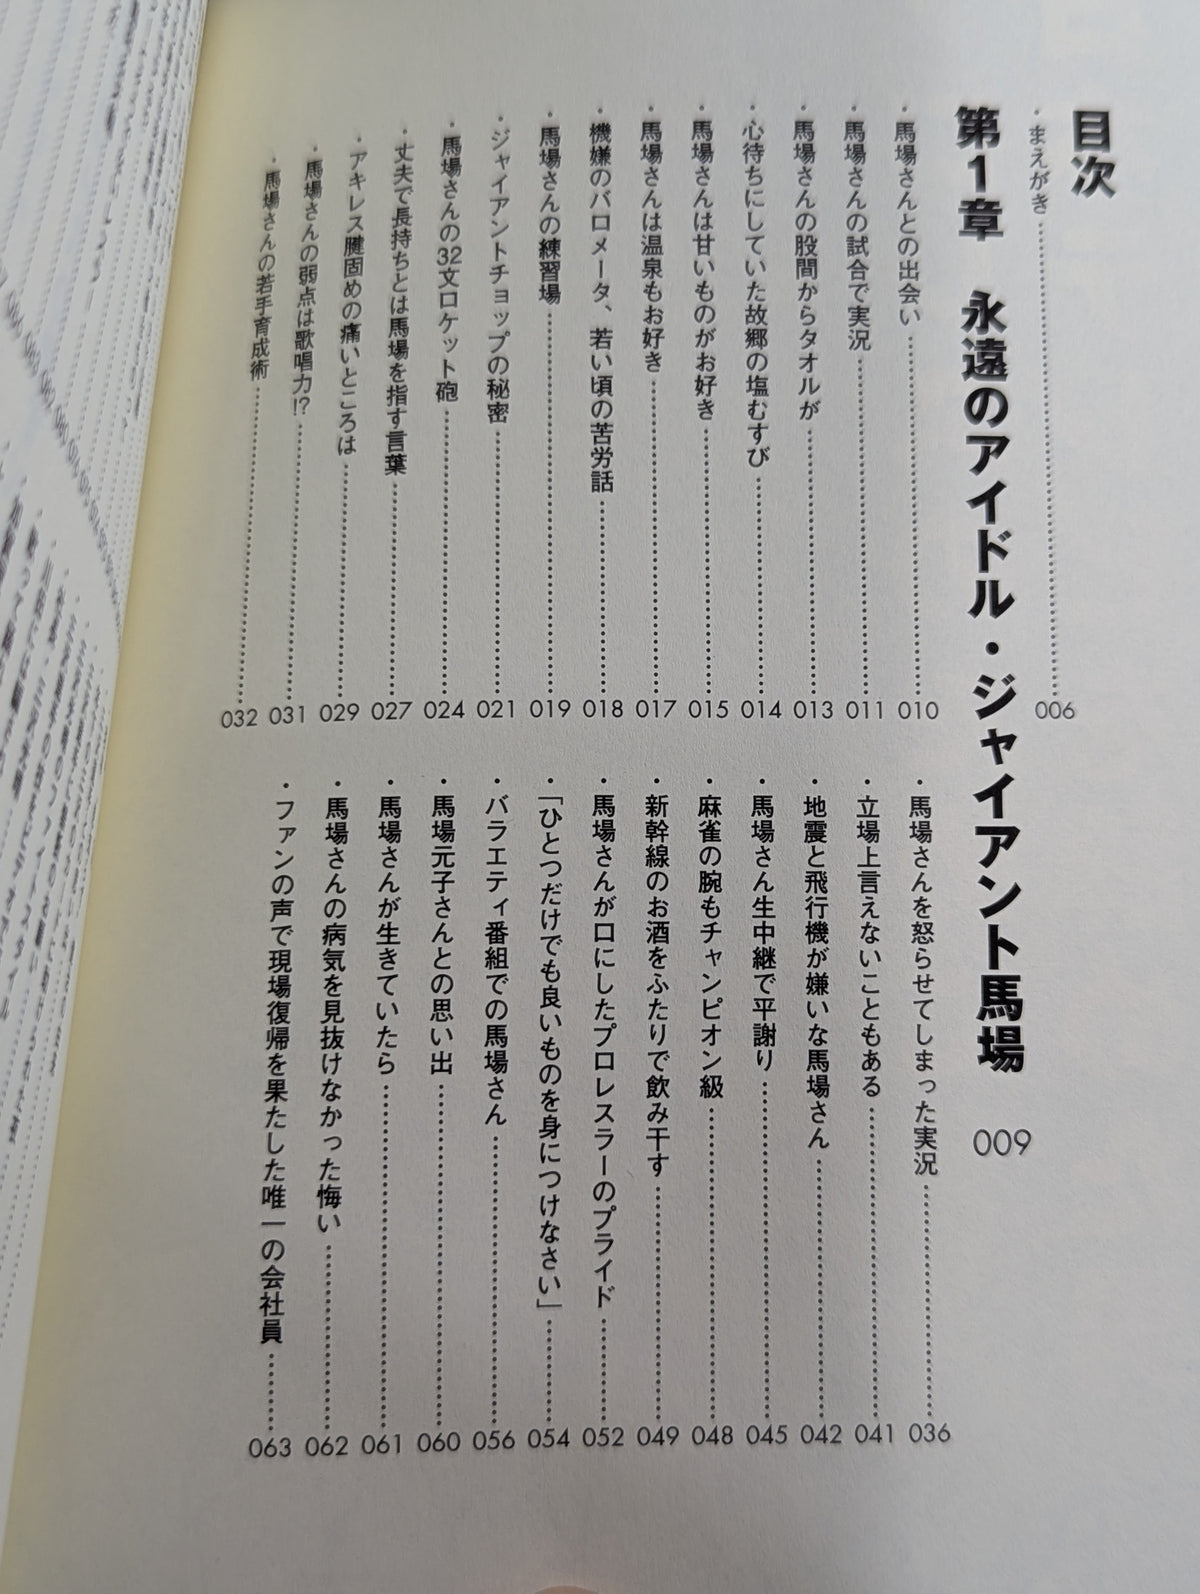 目次
・まえがき 006
第1章 永遠のアイドル・ジャイアント馬場 009
・馬場さんとの出会い 010
・馬場さんの試合で実況 011
・馬場さんの股間からタオルが 013
・心待ちにしていた故郷の塩むすび 014
・馬場さんは甘いものがお好き 015
・馬場さんは温泉もお好き 017
・機嫌のバロメータ、若い頃の苦労話 018
・馬場さんの練習場 019
・ジャイアントチョップの秘密 021
・馬場さんの32文ロケット砲 024
・丈夫で長持ちとは馬場を指す言葉 027
・アキレス腱固めの痛いところは 029
・馬場さんの弱点は歌唱力!? 031
・馬場さんの若手育成術 032
・馬場さんを怒らせてしまった実況 036
・立場上言えないこともある 041
・地震と飛行機が嫌いな馬場さん 042
・馬場さん生中継で平謝り 045
・麻雀の腕もチャンピオン級 048
・新幹線のお酒をふたりで飲み干す 049
・馬場さんが口にしたプロレスラーのプライド 052
・「ひとつだけでも良いものを身につけなさい」 054
・バラエティ番組での馬場さん 056
・馬場元子さんとの思い出 060
・馬場さんが生きていたら 061
・馬場さんの病気を見抜けなかった悔い 062
・ファンの声で現場復帰を果たした唯一の会社員 063